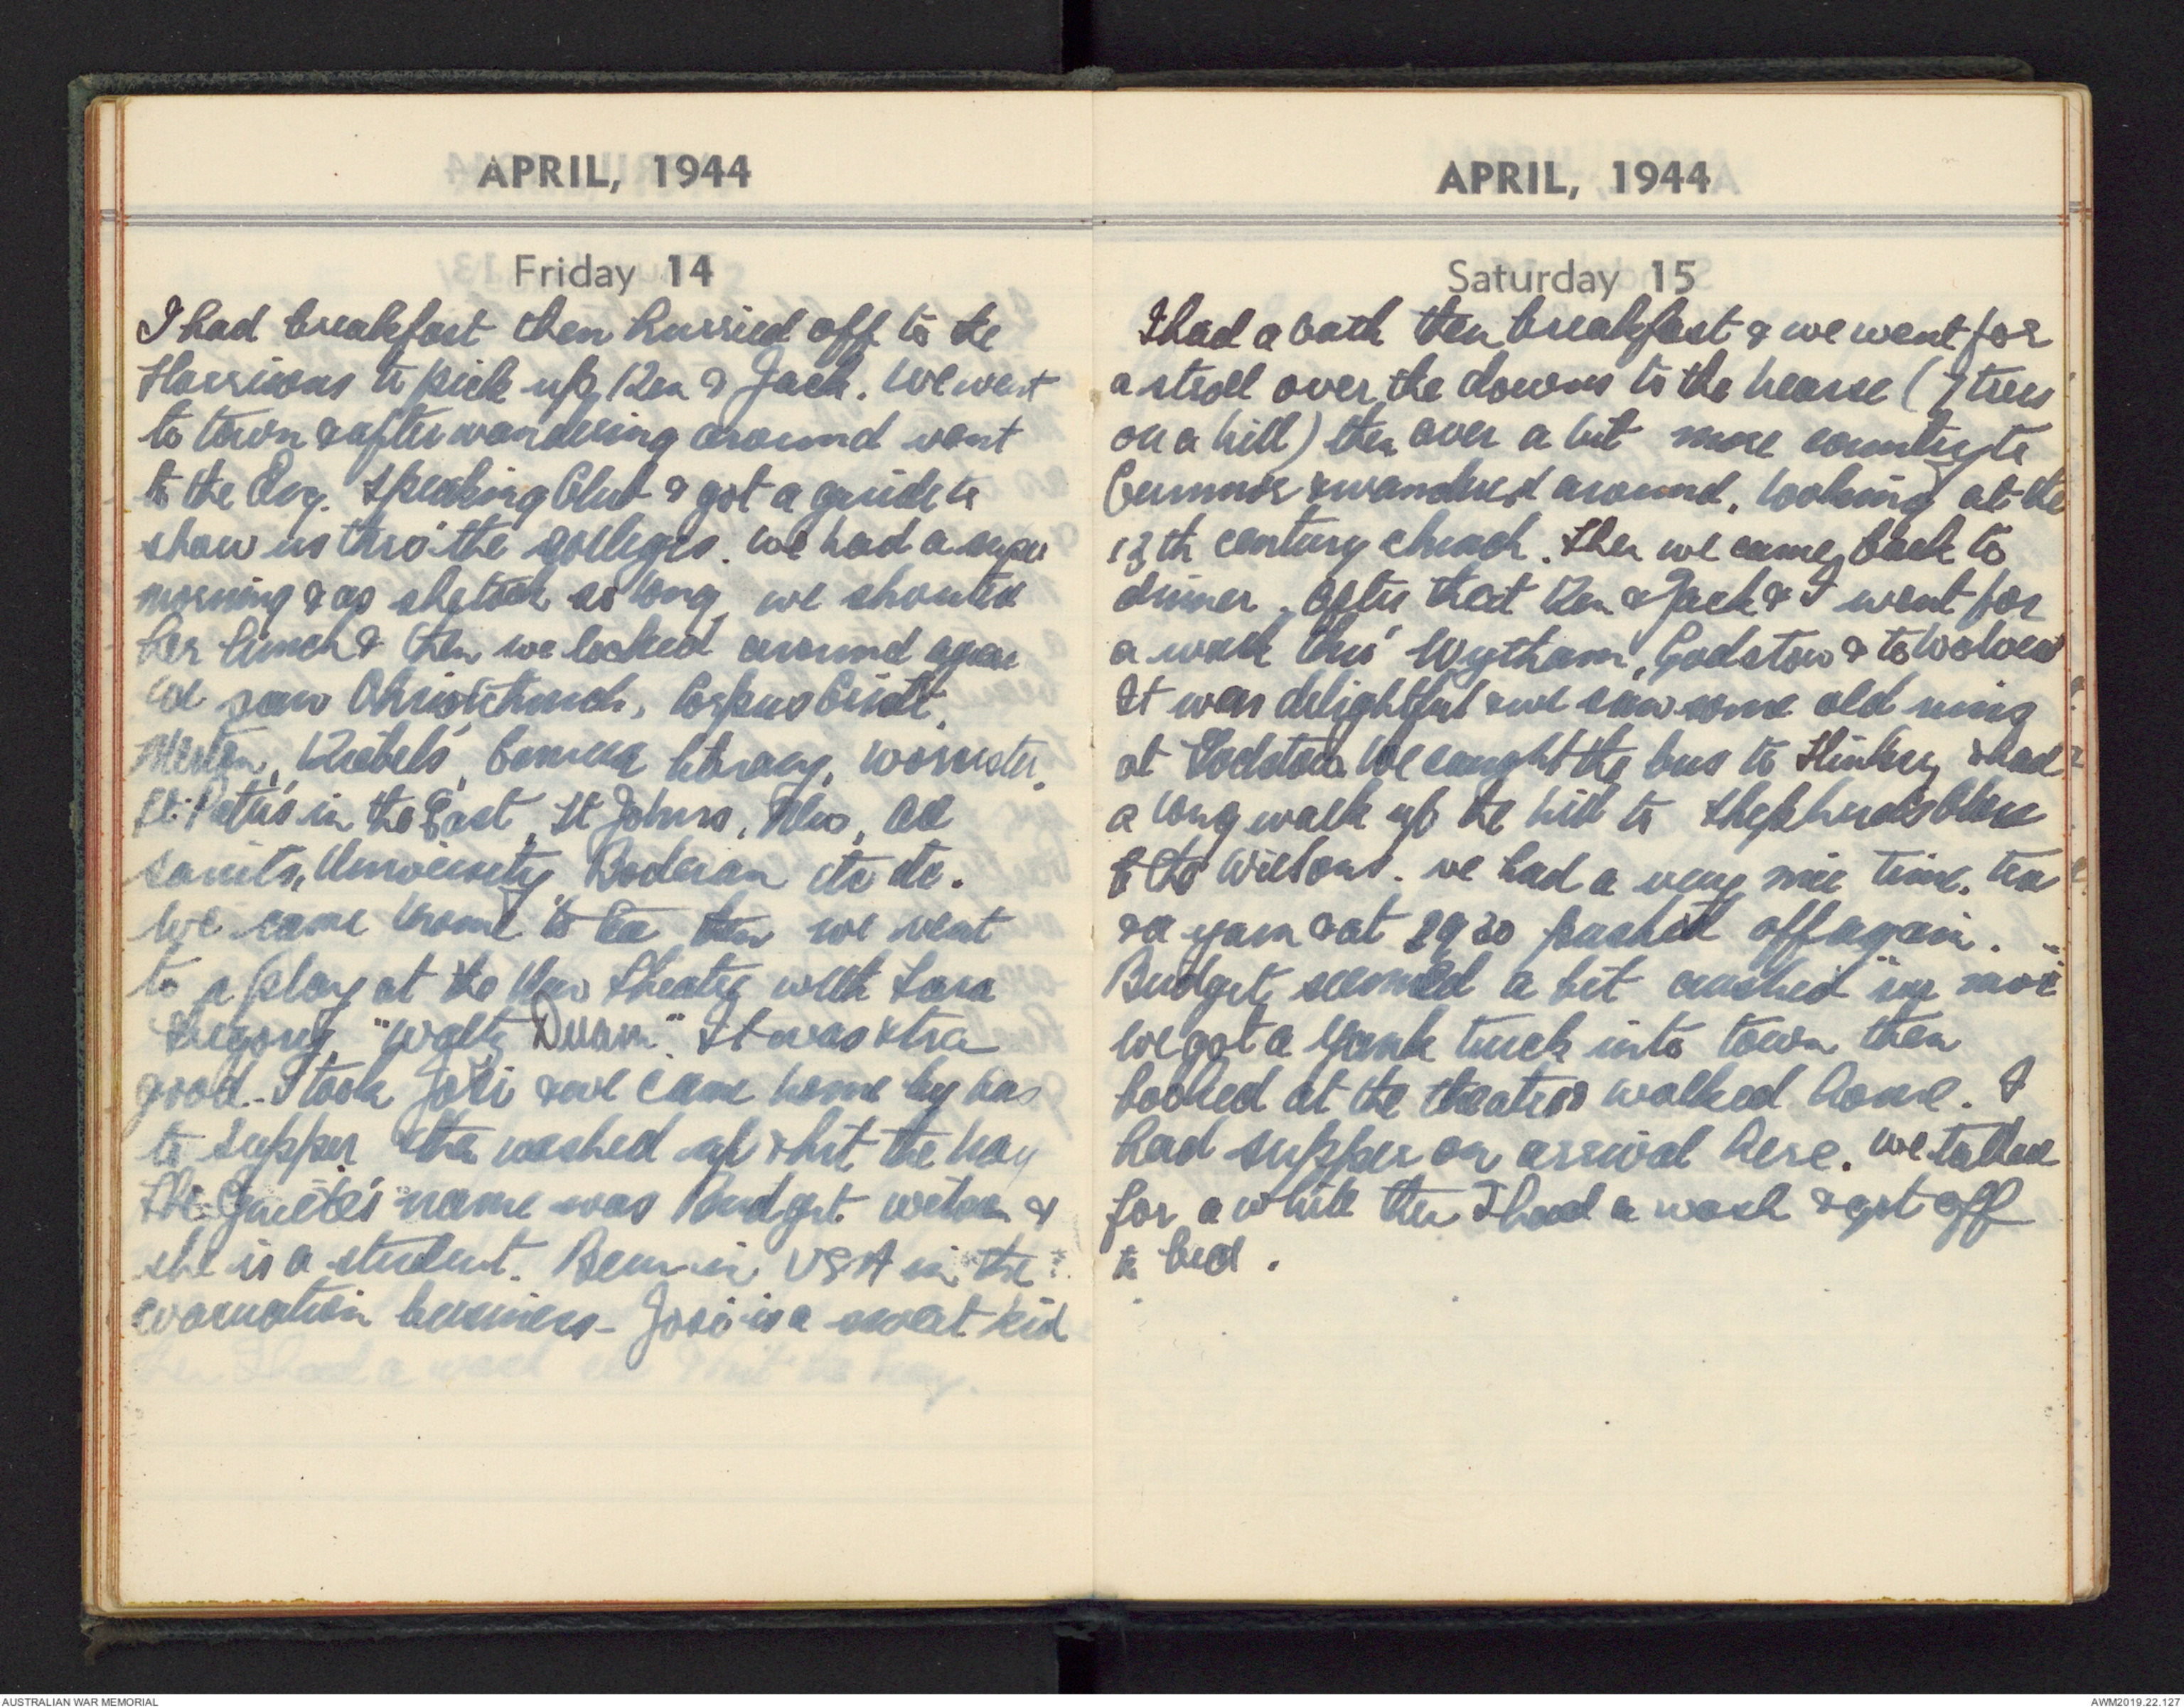 APRIL, 1944
Friday 14
I had breakfast then hurried off to the
Harrisons to pick up Ken & Jack. We went
to town & after wandering around went
to the Eng. Speaking Club & got a guide to
show us thro' the colleges. We had a super
morning & as she took so long, we shouted
her lunch & then we looked around again
We saw Christchurch, Corpus Cristi,
Merton, Keebels', Camera library, Worcester,
St. Peter's in the East, St Johns, New, All
saints, University, Bodleian etc etc.
We came home to tea then we went
to a play at the New Theatre with
"Waltz Dream". It was xtra
good. I took Josi & we came home by bus
to supper & then washed up & hit the hay
The Guide's name was Budget &
she is a student. Been in USA in the
evacuation business - Josi is a sweet kid
then I had a wash and hit the hay.
APRIL, 1944
Saturday 15
I had a bath then breakfast & we went for
a stroll over the downs to the hearse (7 trees
on a hill) then over a bit more country to
Cumnor & wandered around, looking at the
13th century church. Then we came back to
dinner. After that Ken & Jack & I went for
a walk thro' Wytham, Godstow & to
It was delightful & we saw some old ruins
at Godstow. We caught the bus to Hinksey & had
a long walk up the hill to
to the Wilsons. We had a very nice time, tea
& a yarn & at pushed off again.
Budget seemed a bit
We got a Yank truck into town then
booked at the theatre & walked home. I
had supper on arrival here. We talked
for a while then I had a wash & got off
to bed.
AUSTRALIAN WAR MEMORIAL
AWM2019.22.127